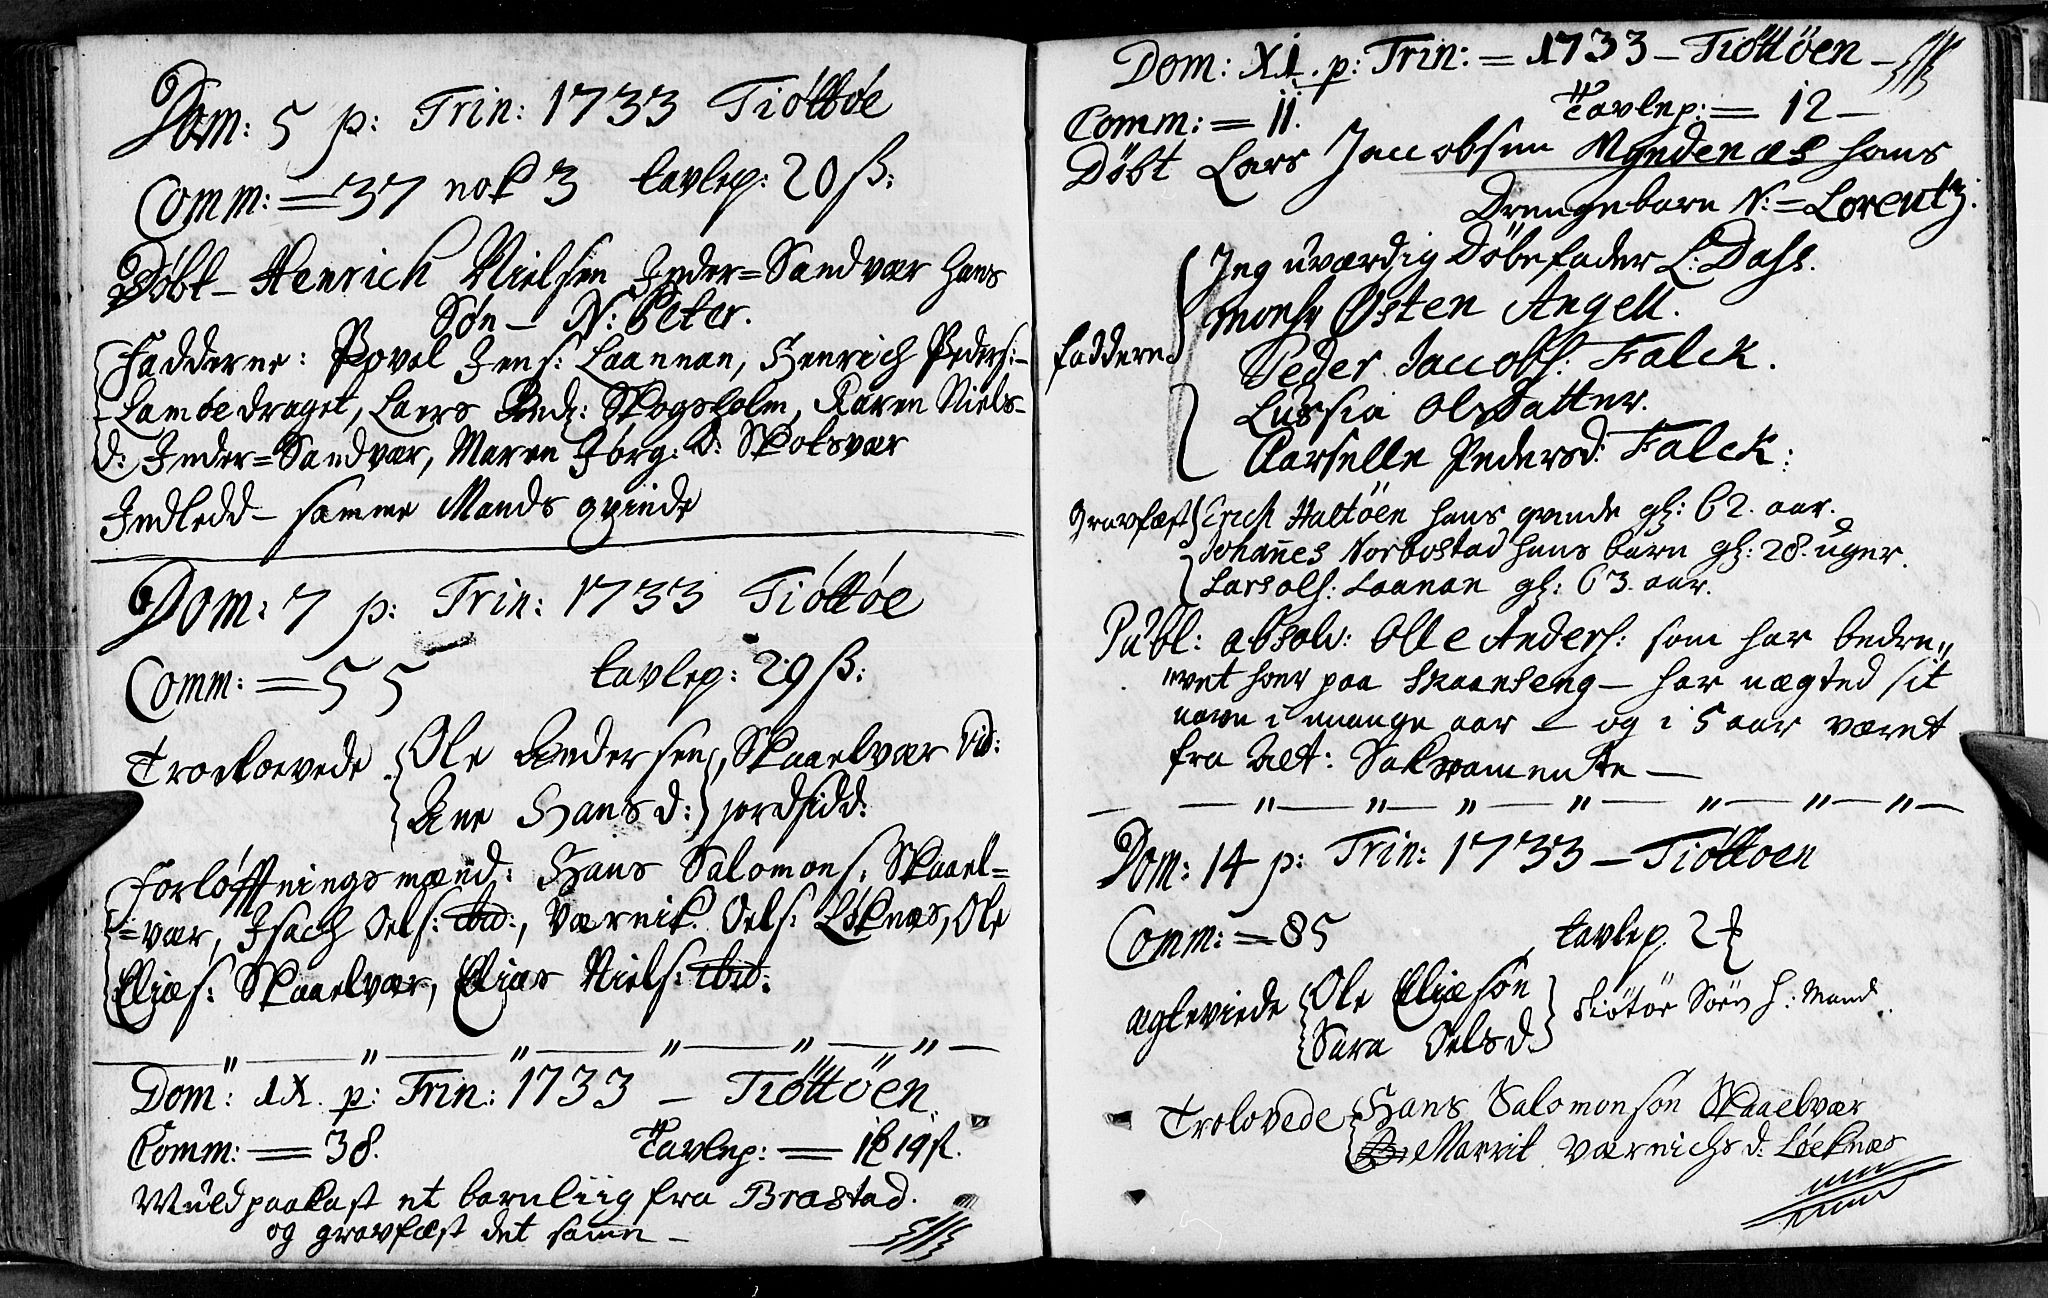 Dom: 5 p: Trin: 1733 Tiøttøe
Comm: = 37 nok 3 tavlep: 20 ß:
Døbt - Henrich Nielsen Inder=Sandvær hans
Søn - N: Peter.
Fadderne: Povol Jens: Laannan, Henrich Peders:-
Lamøedraget, Laers And: Skogsholm, Karen Niels-
d: Inder=Sandvær, Maren Jørg: d: Skotsvær
Indledd - samme Mands qvinde
Dom: 7 p: Trin: 1733 Tiøttøe
Comm: = 55 tavlep: 29 ß:
Troeloevede Ole Andersen, Skaaelvær vid:
Ane Hans d: jordsidd:
Forløffningsmænd: Hans Salomons: Skaael=
=vær, Isach Oels: ibid:, Værnik Oels: Løknæs, Ole
Eliæs: Skaaelvær, Eliæs Niels: ibid:
Dom: IX. p: Trin: 1733 - Tiøttøen.
Comm: = 38. Tavlep: = 1 ℓ 14 ß.
Muldpaakast et barnliig fra Bræstad.
og gravfæst det samme -
Dom: XI. p: Trin: = 1733 - Tiøttøen -
Comm: = 11. Tavlep: = 12 -
Døbt Lars Jaccobsen Myndenæs hans
Drengebarn N: = Lorentz.
Jeg uværdig Døbefader L: Dass.
Fadderne monsr Østen Angell.
Peder Jaccobs: Falck.
Lussia Olsdatter.
Aarselle Pedersd: Falck:
Gravfæst Erich Haltøen hans qvinde gl: 62. aar.
Johannes Norbostad hans barn gl: 28. uger.
Lars ols: Laanan gl: 63. aar.
Publ: absolv: Olle Anders: som har bedre,,
,,vet hoer paa Skaanseng - har nægted sit
navn i mange aar - og i 5 aar været
fra Alt: Sakramente -
Dom: 14 p: Trin: 1733 - Tiøttoen
Comm: = 85 tavlep 2
ægteviede Ole Eliæsøn Tiøtøe Sørv h: Mand.
Sara Oelsd:
Trolovede Hans Salomonsøn Skaaelvær
Marrit Værnichs d: Løeknæs